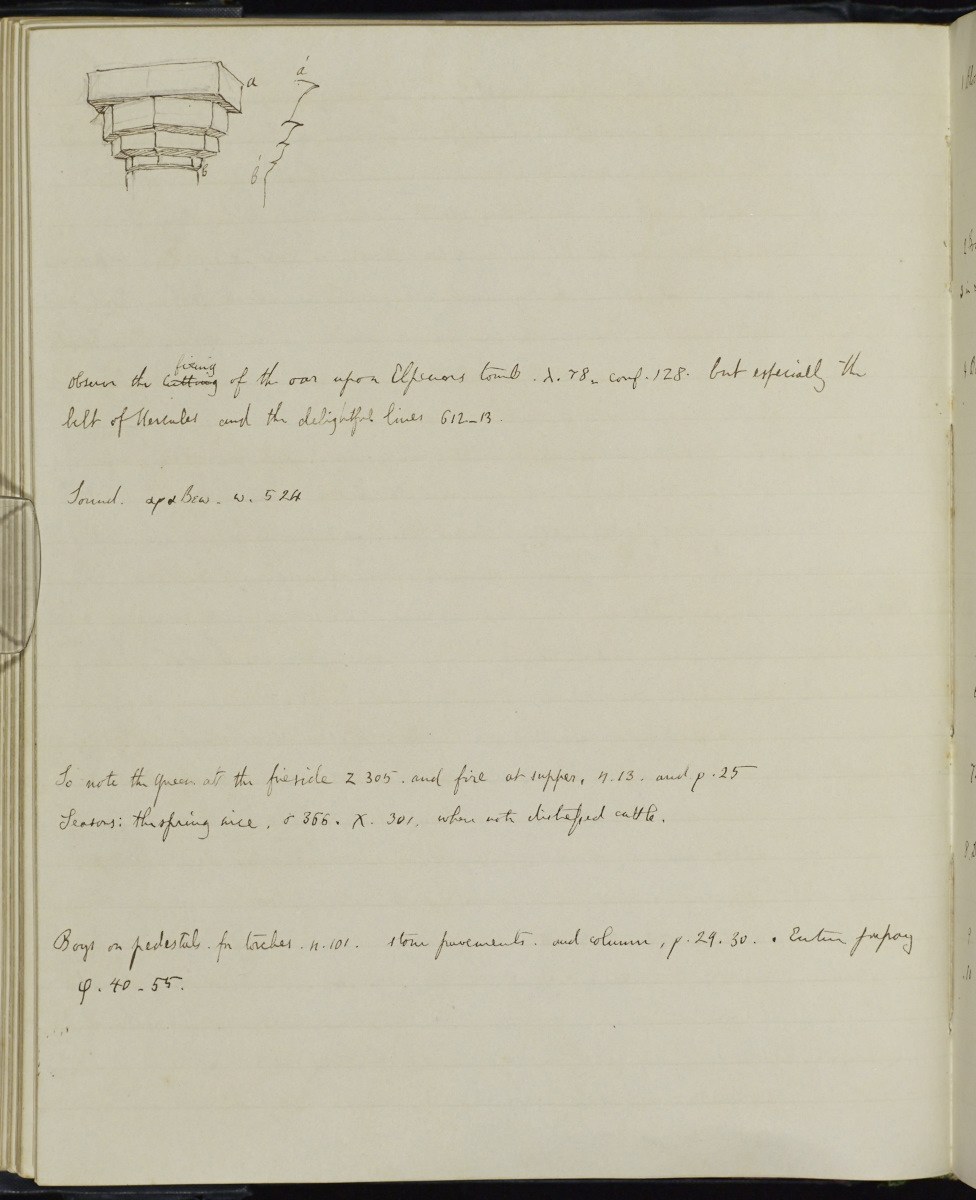 a
á
b
b́
observe the ~~cutting~~ fixing of the oar upon Elpenors tomb. λ. 78. conf. 128. but especially the
belt of Hercules and the delightful lines 612-13.
Sound. αραβεω. ω. 524
So note the queen at the fireside Z 305. and fire at supper, η.13. and ρ. 25
Seasons: the spring nice, σ 366. χ. 301, where note distressed cattle.
Boys on pedestals. for torches. η. 101. stone pavements. and column, ρ. 29. 30. . Entire
φ. 40-55.